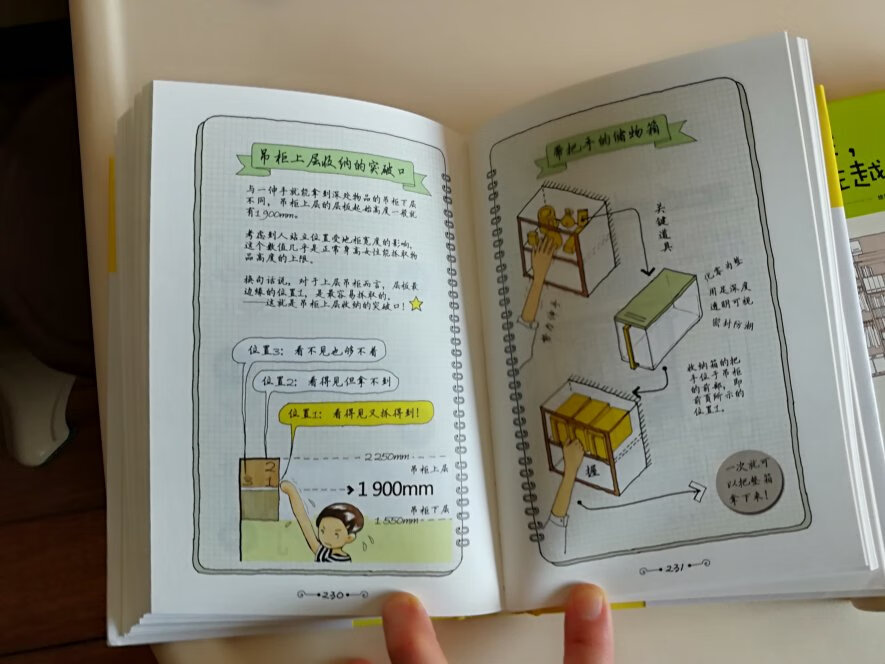 吊柜上层收纳的突破口
与一伸手就能拿到深处物品的吊柜下层
不同，吊柜上层的层板起始高度一般就
有1900mm。
考虑到人站立位置受地柜宽度的影响，
这个数值几乎是正常身高女性能抓取物
品高度的上限。
换句话说，对于上层吊柜而言，层板最
边缘的位置1，是最容易抓取的。
——这就是吊柜上层收纳的突破口！
位置3：看不见也够不着
位置2：看得见但拿不到
位置1：看得见又抓得到！
2 250mm
吊柜上层
1 2
3 1
1 900mm
吊柜下层
1 550mm
230
带把手的储物箱
关键道具
努力伸手
沈客为整
用足深度
透明可视
密封防潮
收纳箱的把
手位于吊柜
的前部，即
前页所示的
位置1。
握
一次就可
以把整箱
拿下来！
231
越